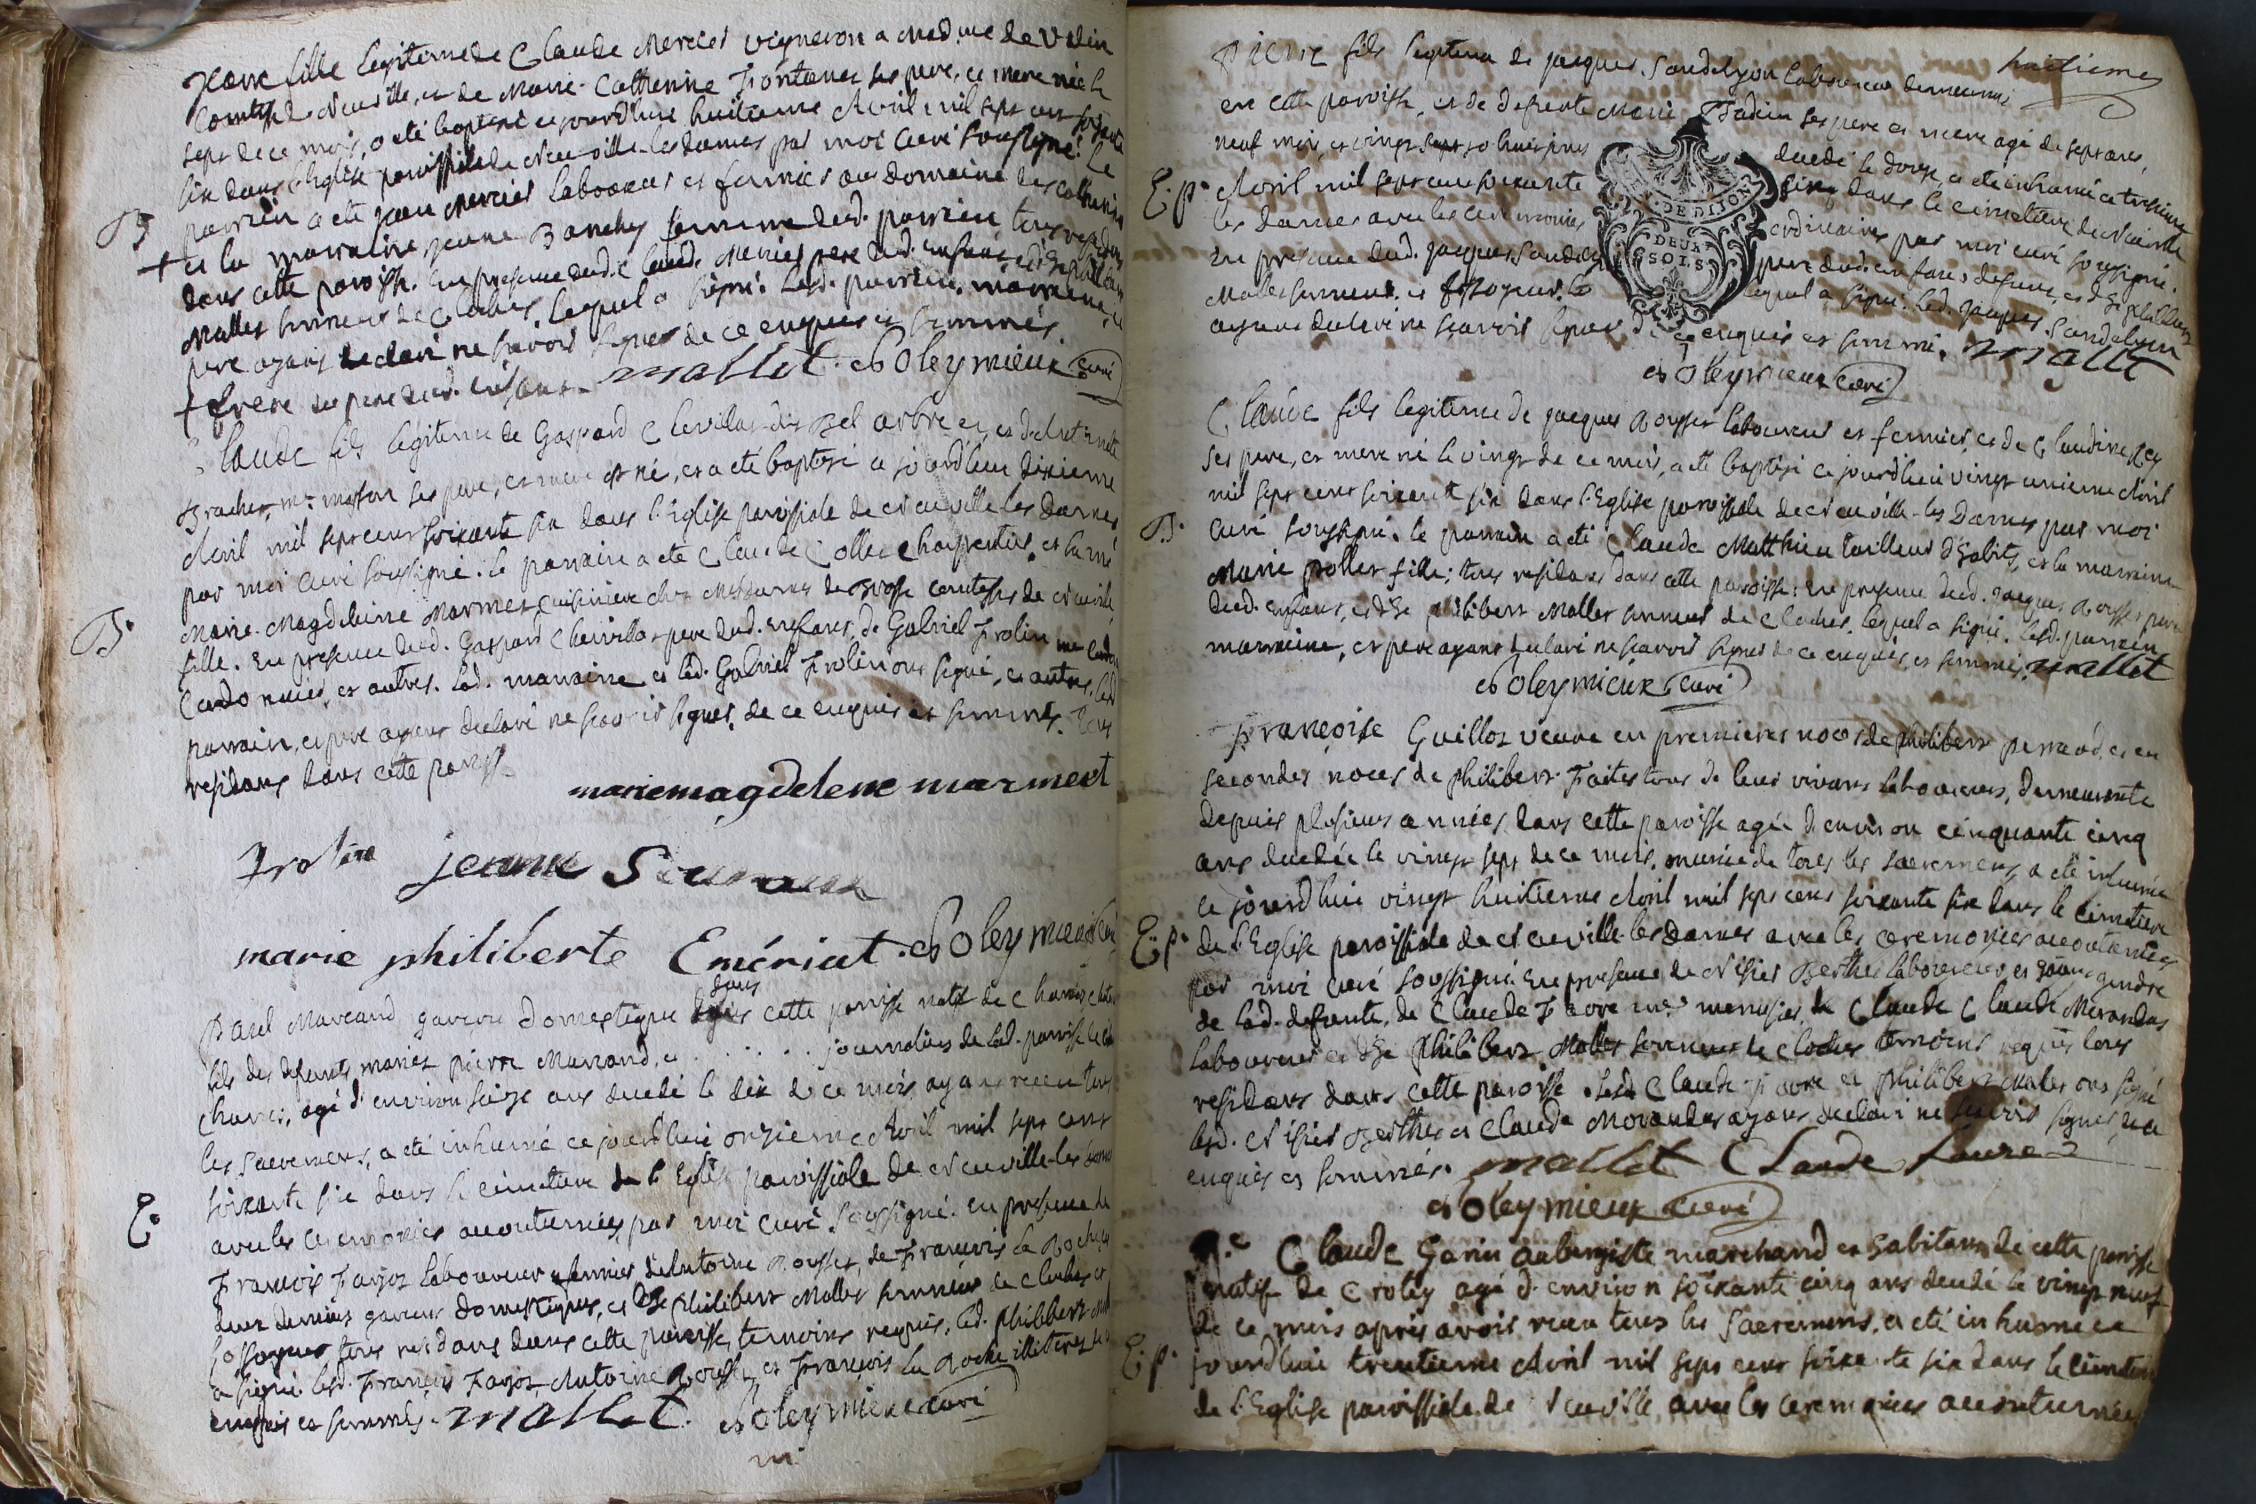 Jeane fille legitime de Claude Mercier vigneron a Mad.me de
Comtesse de Neuville, et de Marie Catherine Fontanet ses pere, et mere née le
sept de ce mois, a été baptisée ce jourd'huy huitieme Avril mil sept cent soixante
six dans l'Eglise paroissiale de Neuville-les dames par moi curé soussigné. Le
parrein a été Jean Mercier laboureur et fermier au domaine des
+ et la marraine Jeane Banchy femme dud. parrein, tous residans
dans cette paroisse. En presence dud. Claude Mercier pere dud. enfant, et de Philibert
Mallet sonneur de cloches, lequel a signé. Lesd. parrein, marraine, et
pere ayans declaré ne sçavoir signer de ce enquis et sommés.
+ frere du pere dud. enfant. mallet. Soleymieux curé
B
Claude fils legitime de Gaspard Chevillar dit Bel arbre et d'Antoinette
Brachet, m.e masson ses pere, et mere est né, et a été baptisé ce jourd'huy dixieme
Avril mil sept cent soixante six dans l'Eglise paroissiale de Neuville les Dames
par moi curé soussigné. le parrain a été Claude Collet charpentier, et la m.e
Marie-Magdeleine Marmet cuisiniere chez Mesdames de comtesses de Neuville,
fille. En presence dud. Gaspard Chevillar pere dud. enfant, de Gabriel Frolin me cordo
Cordonnier, et autres. lad. marraine et led. Gabriel Frolin ons signé, et autres, led.
parrain, et pere ayans declaré ne sçavoir signer, de ce enquis et sommés. Tous
residans dans cette paroisse
B.
mariemagdelene marmert
frolin jeanne
marie philiberte Emériat. Soleymieux curé
dans
Paul Marcand garçon domestique cette paroisse natif de
fils des defunts mariés pierre Marcand, et . . . . . . journaliers de lad. paroisse de
agé d'environ seize ans decedé le dix de ce mois ayans receu tous
les sacremens, a été inhumé ce jourd'huy onzieme Avril mil sept cent
soixante six dans le cimetiere de l'Eglise paroissiale de Neuville les dames
avec les ceremonies accoutumées, par moi curé soussigné. En presence de
François Farjot laboureur et fermier d'Antoine Rousset, de François La Roche les
deux derniers garçons domestiques, et de Philibert Mallet sonneur de cloches et
fossoyeur tous residans dans cette paroisse, temoins requis, led. philibert Mallet
a signé lesd. François Farjot Antoine Rousset, et François La Roche illiteres de ce
enquis et sommés. mallet. Soleymieux curé
E.
huitieme
Pierre fils legitime de jacques Sandelyon laboureur demeurant
en cette paroisse, et de defunte Marie Badin ses pere et mere agé de sept ans,
neuf mois, et vingt sept ou huit jours decedé le douze, a été inhumé ce treizieme
Avril mil sept cent soixante six dans le cimetiere de Neuville
les Dames avec les ceremonies ordinaires par moi curé soussigné.
En presence dud. jacques Sandelyon pere dud. enfant defunt, et de philibert
Mallet sonneur, et fossoyeur, lequel a signé. Led. jacques Sandelyon
ayant declaré ne sçavoir signer de ce enquis et sommé. mallet
E. p.
DE DIJON
DEUX
SOLS
Soleymieux curé
Claude fils legitime de jacques Rousset laboureur et fermier, et de Claudine Rey
ses pere, et mere né le vingt de ce mois, a été baptisé ce jourd'huy vingt unieme Avril
mil sept cent soixante six dans l'Eglise paroissiale de Neuville-les Dames par moi
curé soussigné. le parrain a été Claude Matthieu tailleur d'habits, et la marraine
Marie prollet fille; tous residans dans cette paroisse: En presence dud. jacques Rousset pere
dud. enfant, et de philibert Mallet sonneur de cloches. lequel a signé. lesd. parrein,
marraine, et pere ayans declaré ne sçavoir signer de ce enquis, et sommés. mallet
B.
Soleymieux curé
Françoise Guillot veuve en premieres noces de philibert perraud, et en
secondes noces de philibert tous de leur vivans laboureurs, demeurante
depuis plusieurs années dans cette paroisse agée d'environ cinquante cinq
ans decedée le vingt sept de ce mois, munie de tous les sacremens, a été inhumée
ce jourd'huy vingt huitieme Avril mil sept cens soixante six dans le cimetiere
de l'Eglise paroissiale de Neuville-les Dames avec les ceremonies accoutumées
par moi curé soussigné. En presence de Nisier Berthet laboureur et gendre
de lad. defunte, de Claude Favre m.e menusier, de Claude Claude Morandas
laboureur et de philibert Mallet sonneur de cloches temoins requis tous
residans dans cette paroisse. Lesd. Claude Favre et philibert Mallet ons signé
lesd. Nisier Berthet et Claude Morandas ayans declaré ne sçavoir signer, de ce
enquis et sommés. mallet Claude faure
E. p.
Soleymieux curé
S.r Claude Garin aubergiste marchand et habitant de cette paroisse
natif de Croty agé d'environ soixante cinq ans decedé le vingt neuf
de ce mois après avoir receu tous les sacremens, a été inhumé ce
jourd'huy trentieme Avril mil sept cent soixante six dans le cimetiere
de l'Eglise paroissiale de Neuville avec les ceremonies accoutumées
E. p.